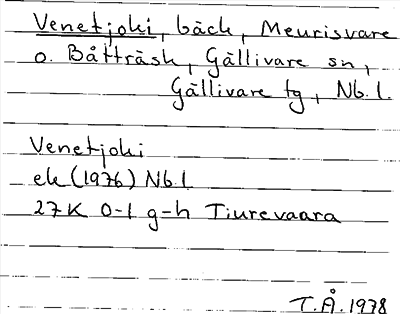 Venetjoki, bäck, Meurisvare
o. Båtträsk, Gällivare sn,
Gällivare tg, Nb.l.
Venetjoki
ek (1976) Nb.l
27K 0-1 g-h Tiurevaara
T.Å. 1978